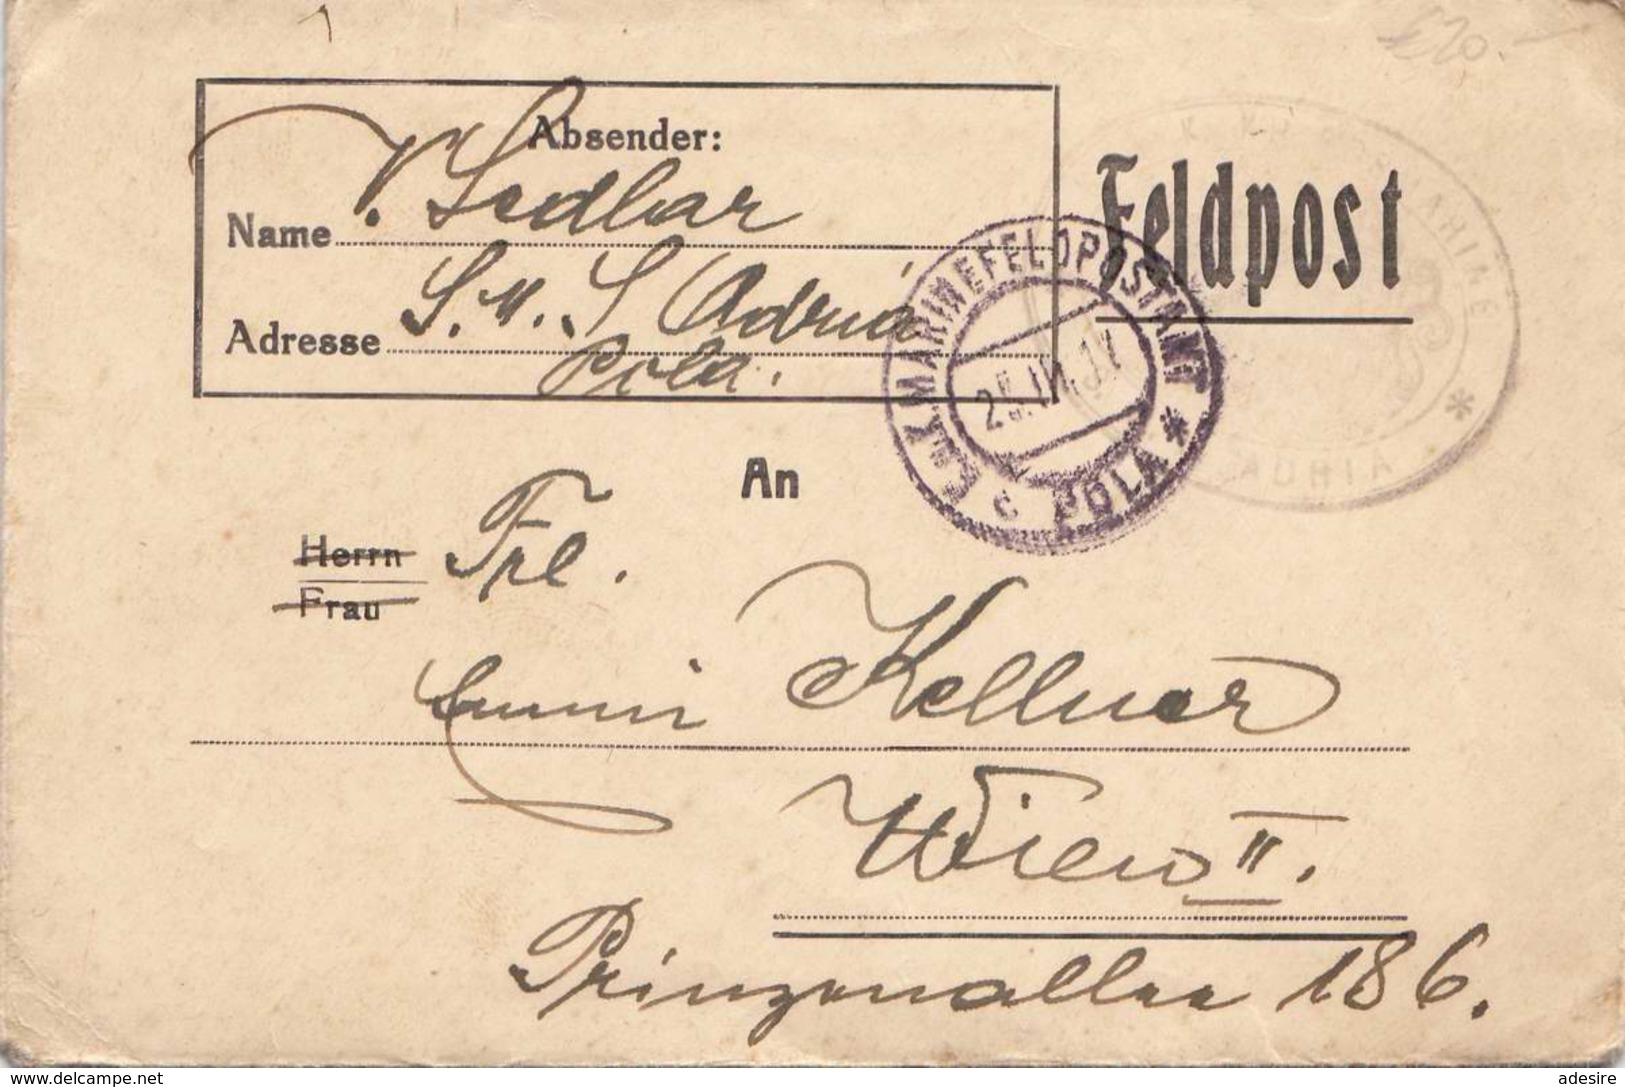 £20.-
Absender:
Name V. Sedlar
Adresse S. M. S Adria
Pola.
Feldpost
K.u.K. MARINEFELDPOSTAMT
25. III. 17
c POLA *
An
Herrn Frl.
Frau
Emmi Kellner
Wien II.
Prinzenallee 186.
www.delcampe.net
adesire